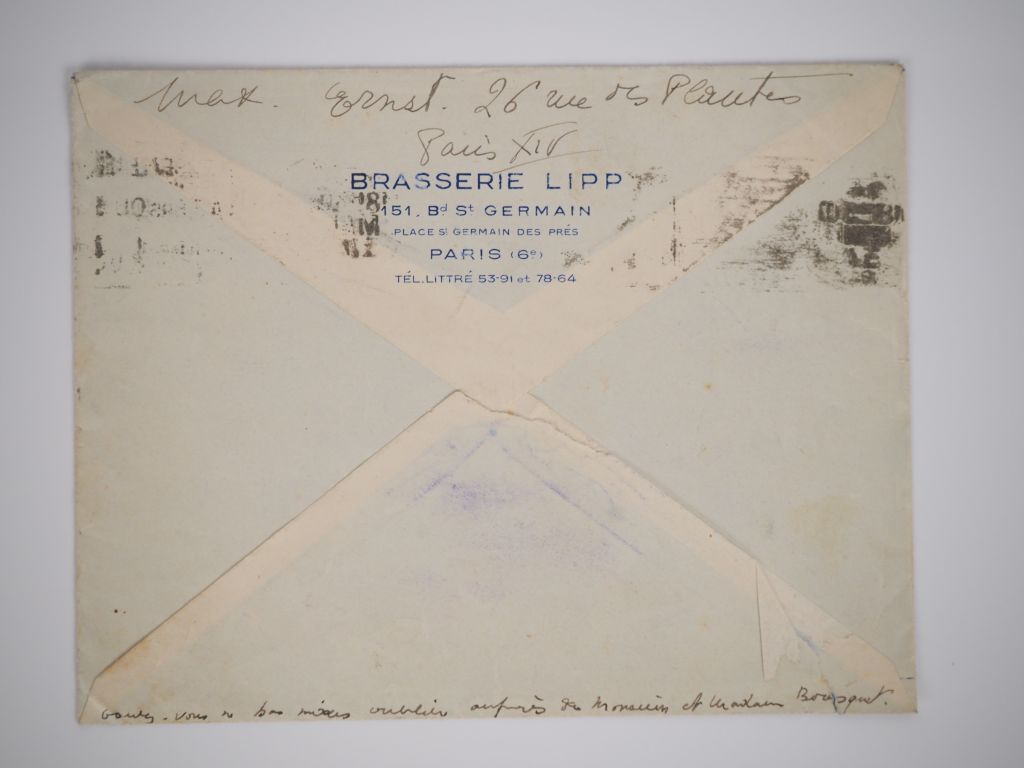 Max. Ernst. 26 rue des Plantes
Paris XIV
BRASSERIE LIPP
151, Bd St GERMAIN
PLACE St GERMAIN DES PRÉS
PARIS (6e)
TÉL. LITTRÉ 53-91 et 78-64
vous oublier auprès de Monsieur et Madame Bousquet.